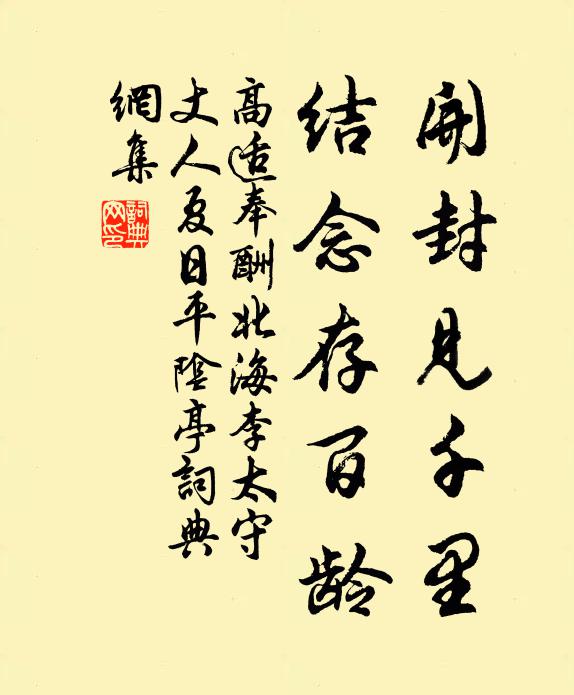 開封見千里
结念存百龄
高适奉酬北海李太守
丈人夏日平陰亭詞典
網集
詞典網印